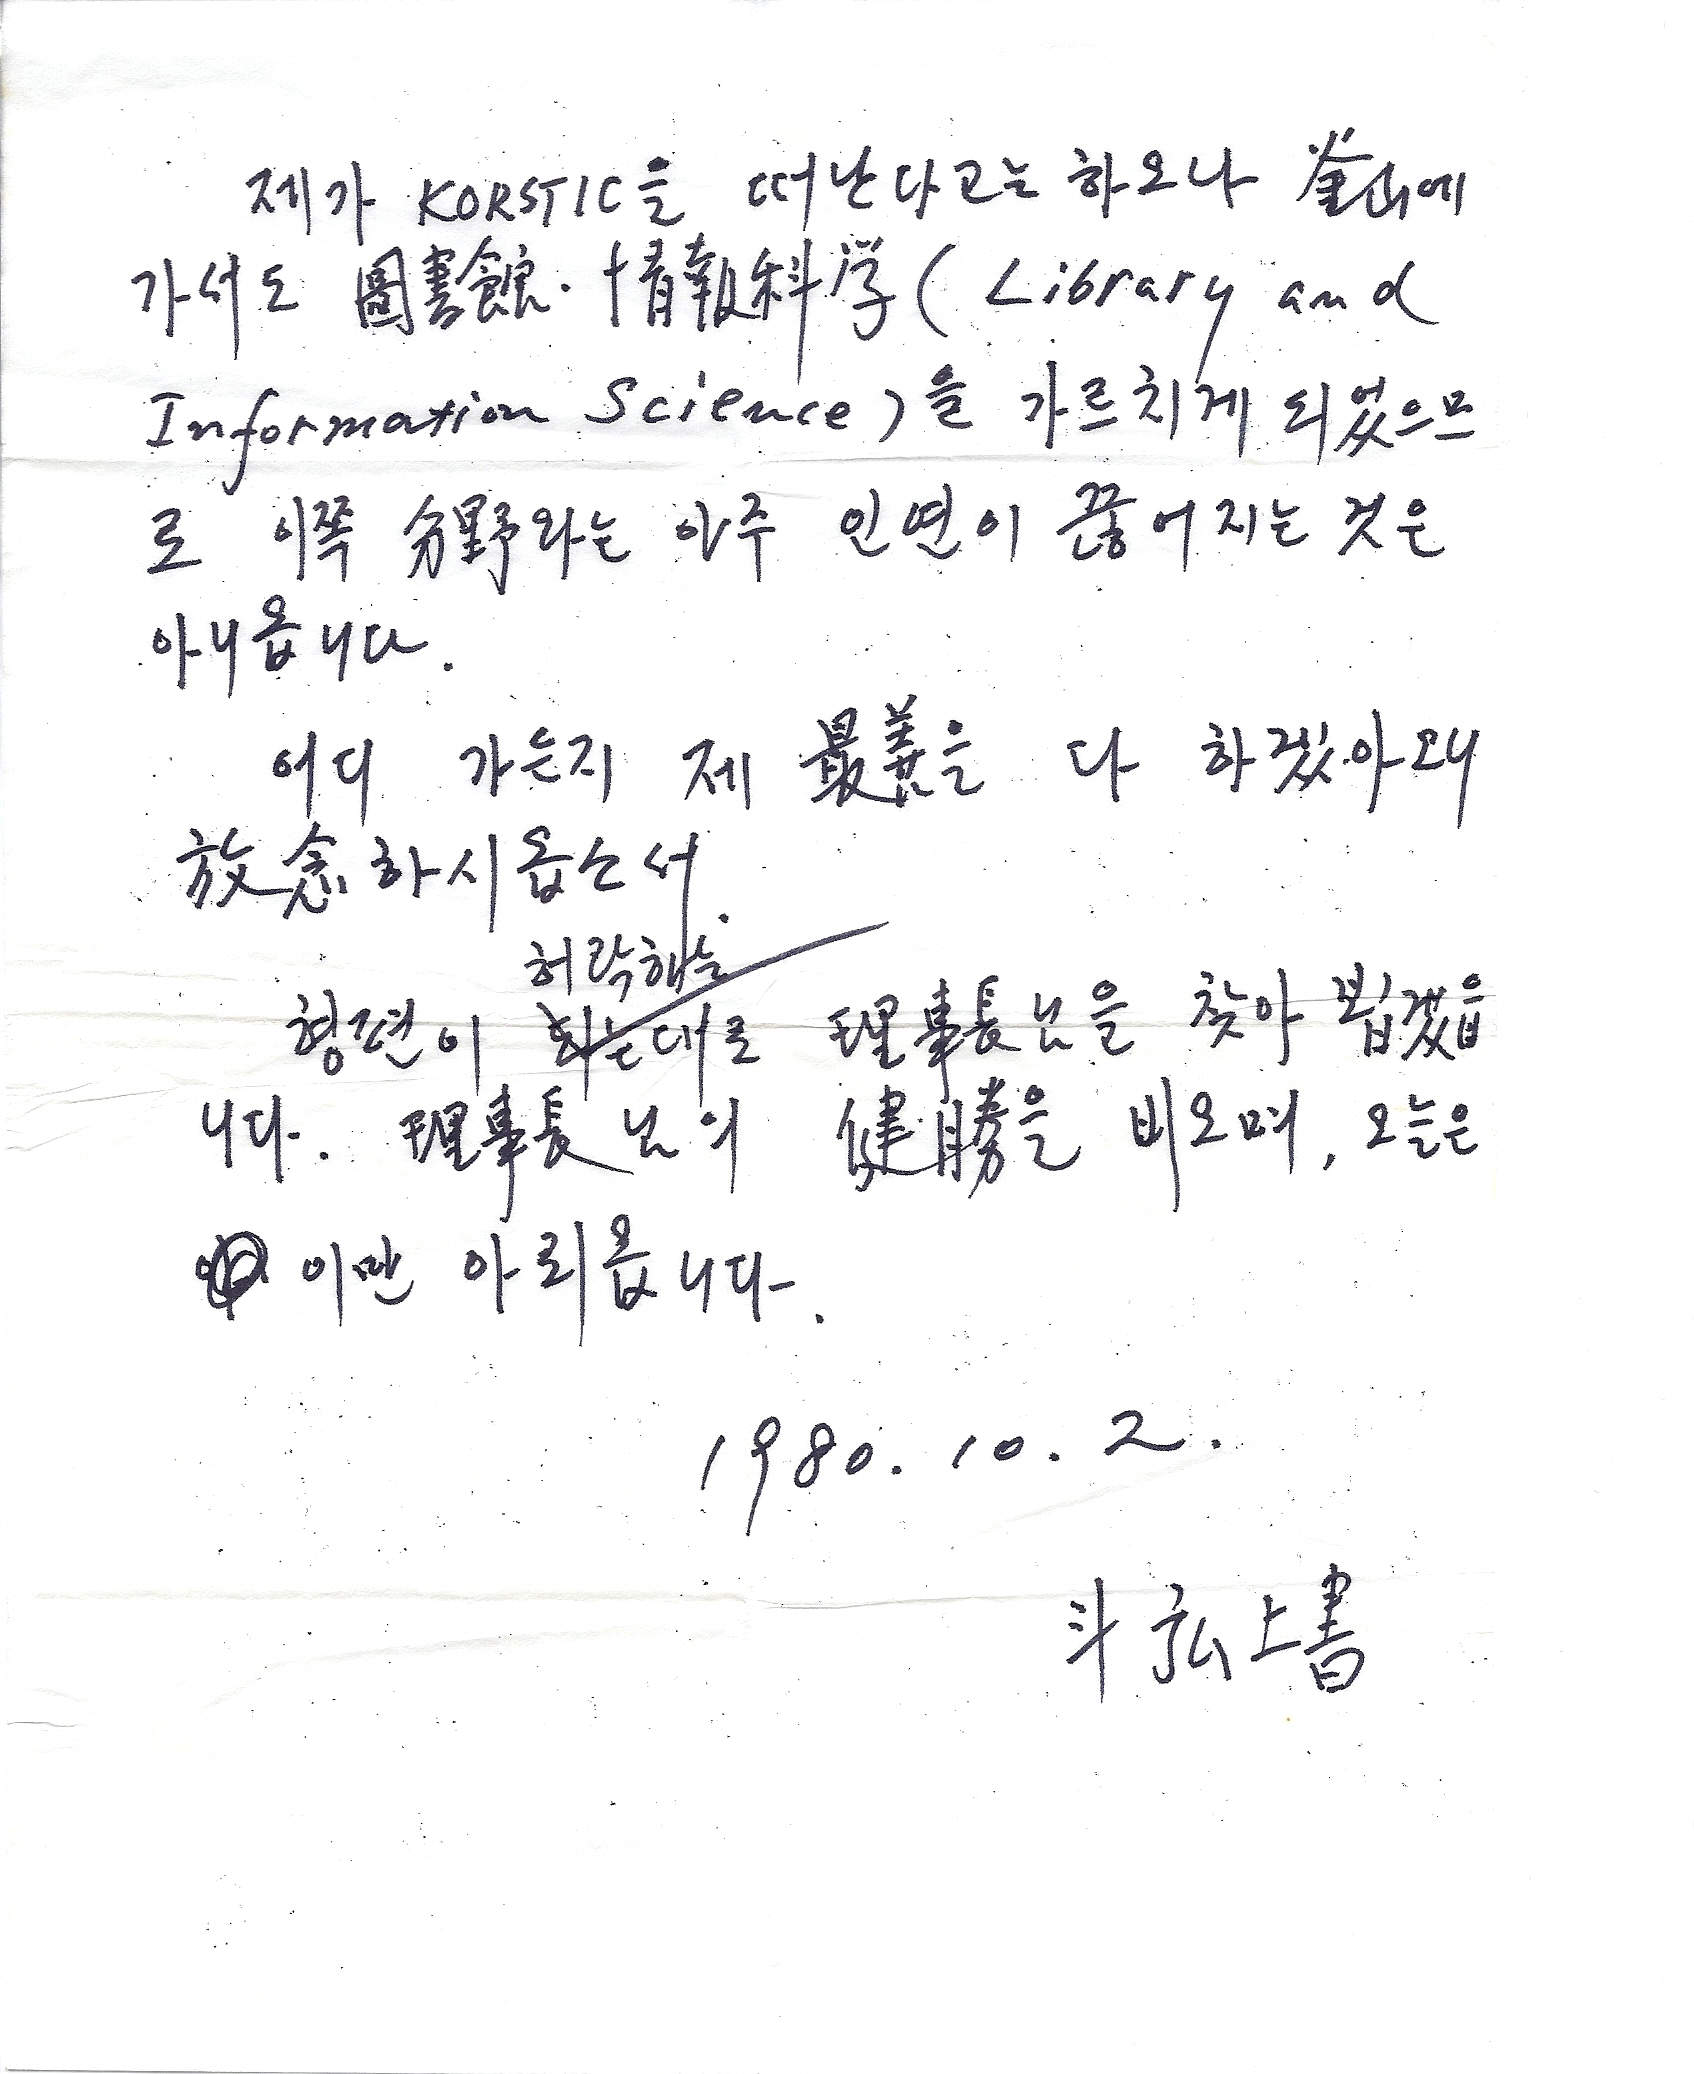 제가 KORSTIC을 떠난다고는 하오나 釜山에
가서도 圖書館·情報科学( Library and
Information Science)을 가르치게 되었으므
로 이쪽 分野와는 아주 인연이 끊어지는 것은
아니옵니다.
어디 가든지 제 最善을 다 하겠아오니
放念하시옵소서.
허락하는
형편이 하는대로 理事長님을 찾아 뵙겠읍
니다. 理事長님의 健勝을 비오며, 오늘은
이만 아뢰옵니다.
1980. 10. 2.
斗弘上書